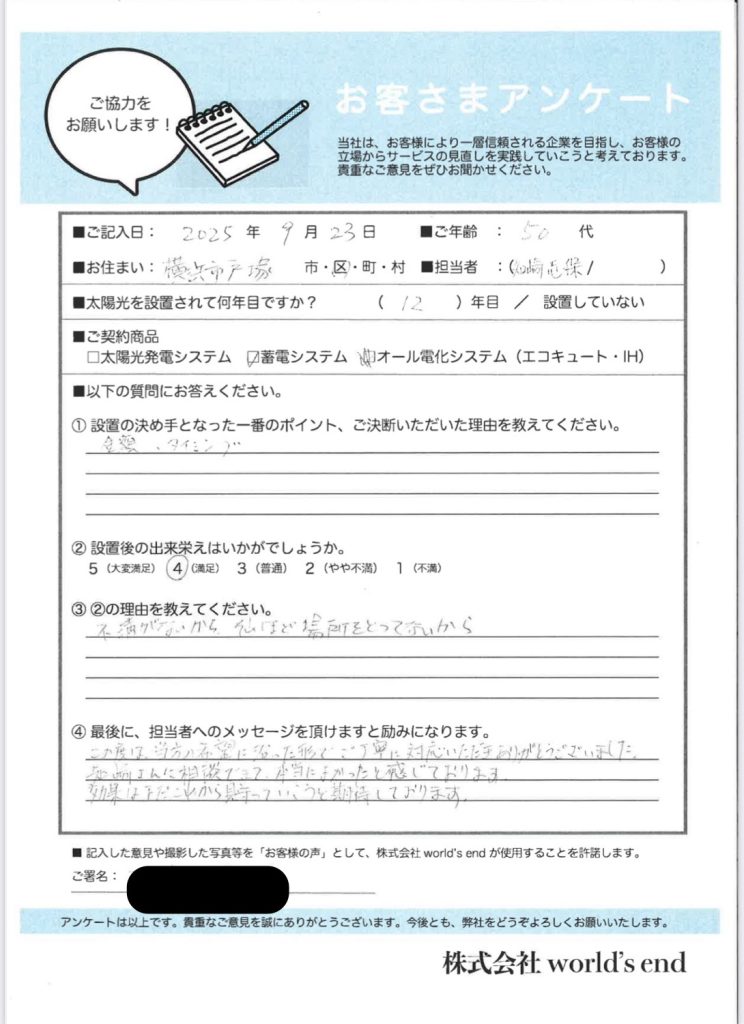 ご協力を
お願いします！
お客さまアンケート
当社は、お客様により一層信頼される企業を目指し、お客様の
立場からサービスの見直しを実践していこうと考えております。
貴重なご意見をぜひお聞かせください。
■ご記入日： 2025 年 9 月 23 日 ■ご年齢 ： 50 代
■お住まい： 横浜市戸塚 市・区・町・村 ■担当者 ：( / )
■太陽光を設置されて何年目ですか？ （ 12 ）年目 ／ 設置していない
■ご契約商品
□太陽光発電システム ☑蓄電システム オール電化システム（エコキュート・IH）
■以下の質問にお答えください。
① 設置の決め手となった一番のポイント、ご決断いただいた理由を教えてください。
金額、タイミング
② 設置後の出来栄えはいかがでしょうか。
5（大変満足） 4（満足） 3（普通） 2（やや不満） 1（不満）
③ ②の理由を教えてください。
不満がないから、 ほど場所をとってないから
④ 最後に、担当者へのメッセージを頂けますと励みになります。
この度は、当方の希望に沿った形でご丁寧に対応いただきありがとうございました。
さんに相談できて、本当によかったと感じております。
効果はまだこれから見守っていこうと期待しております。
■ 記入した意見や撮影した写真等を「お客様の声」として、株式会社 world's end が使用することを許諾します。
ご署名：
アンケートは以上です。貴重なご意見を誠にありがとうございます。今後とも、弊社をどうぞよろしくお願いいたします。
株式会社 world's end